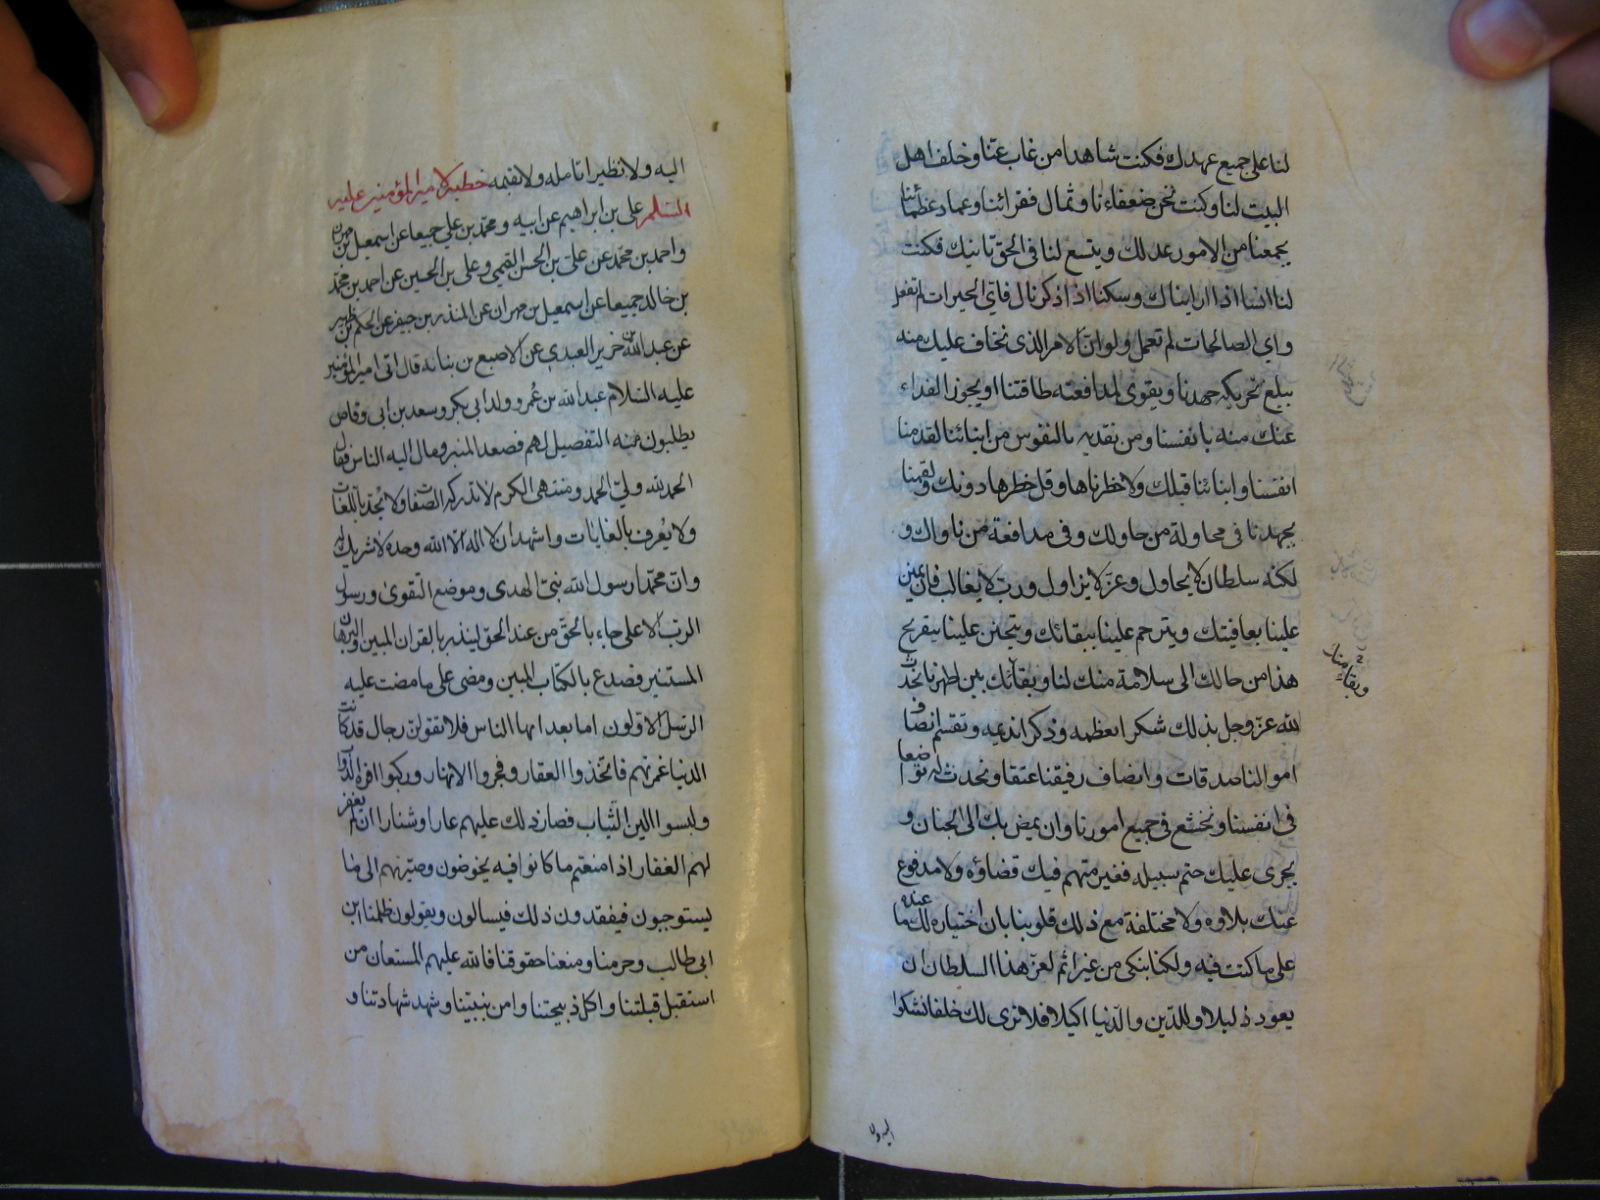 لنا على جميع عهدك فكنت شاهدا من غاب عنا وخلف اهل
البيت لنا وكنت نحن ضعفاءنا وثمال فقرائنا وعماد عظمائنا
يجمعنا من الامور عدلك ويتسع لنا في الحق تانيك فكنت
لنا انسا اذا رايناك وسكنا اذا ذكرناك فاي الخيرات لم تفعل
واي الصالحات لم تعمل ولو ان الامر الذي نخاف عليك منه
يبلغ تحريكه جهدنا ويقوى لمدافعته طاقتنا او يجوز الفداء
عنك منه بانفسنا ومن نفديه بالنفوس من ابنائنا لقدمنا
انفسنا وابنائنا قبلك ولاخطرناها وقل خطرها دونك ولقمنا
بجهدنا في محاولة من حاولك وفي مدافعة من ناواك و
لكنه سلطان لا يحاول وعز لا يزاول ورب لا يغالب فان يمنن
علينا بعافيتك ويترحم علينا ببقائك ويتحنن علينا بتفريج
هذا من حالك الى سلامة منك لنا وبقائك بين اظهرنا نحدث
لله عز وجل بذلك شكرا نعظمه وذكرا نديمه ونقسم انصاف
اموالنا صدقات وانصاف رقيقنا عتقا ونحدث له تواضعا
في انفسنا ونخشع في جميع امورنا وان يمض بك الى الجنان و
يجرى عليك حتم سبيله فغير متهم فيك قضاؤه ولا مدفوع
عنك بلاوه ولا مختلفة مع ذلك قلوبنا بان اختياره لك ما عنده
على ما كنت فيه ولكنا نبكي من غير اثم لعز هذا السلطان ان
يعود ذليلا وللدين والدنيا اكيلا فلا نرى لك خلفا نشكوا
وبقاء منك
اليه ولا
اليه ولا نظيرا نامله ولا نقيمه خطبة لامير المؤمنين عليه
السلم على بن ابراهيم عن ابيه ومحمد بن على جميعا عن اسمعيل بن مهران
واحمد بن محمد عن على بن الحسن القيمي وعلى بن الحسين عن احمد بن محمد
بن خالد جميعا عن اسمعيل بن مهران عن المنذر بن جيفر عن الحكم بن ظهير
عن عبد الله بن خرير العبدي عن الاصبغ بن بناته قال اتى امير المؤمنين
عليه السلام عبد الله بن عمر وولد ابي بكر وسعد بن ابى وقاص
يطلبون منه التفصيل لهم فصعد المنبر ومال اليه الناس فقال
الحمد لله ولي الحمد ومنتهى الكرم لا تدركه الصفات ولا يحد باللغات
ولا يعرف بالغايات واشهد ان لا اله الا الله وحده لا شريك له
وان محمدا رسول الله نبي الهدى وموضع التقوى ورسول
الرب الاعلى جاء بالحق من عند الحق لينذر بالقران المبين والبرهان
المستنير فصدع بالكتاب المبين ومضى على ما مضت عليه
الرسل الاولون اما بعد ايها الناس فلا تقولن رجال قد كانت
الدنيا غمرتهم فاتخذوا العقار وفجروا الانهار وركبوا افره الدواب
ولبسوا الين الثياب فصار ذلك عليهم عارا وشنارا ان لم يغفر
لهم الغفار اذا منعتهم ما كانوا فيه يخوضون وصيرتهم الى ما
يستوجبون فيفقدون ذلك فيسالون ويقولون ظلمنا ابن
ابى طالب وحرمنا ومنعنا حقوقنا فالله عليهم المستعان من
استقبل قبلتنا واكل ذبيحتنا وامن بنبينا وشهد شهادتنا و